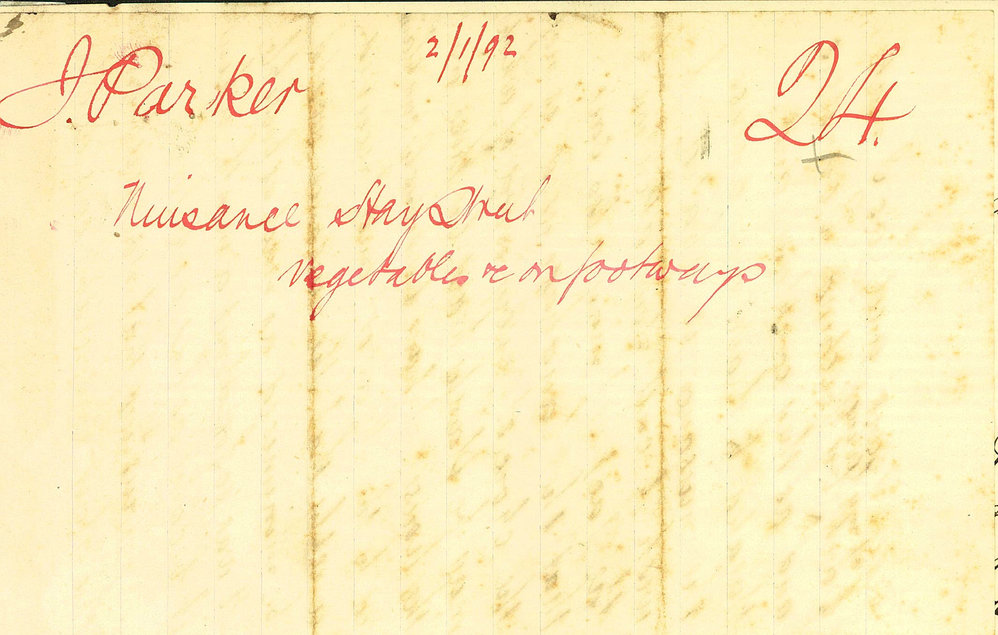 J. Parker
2/1/92
24.
Nuisance Hay Street
vegetables &c on footways